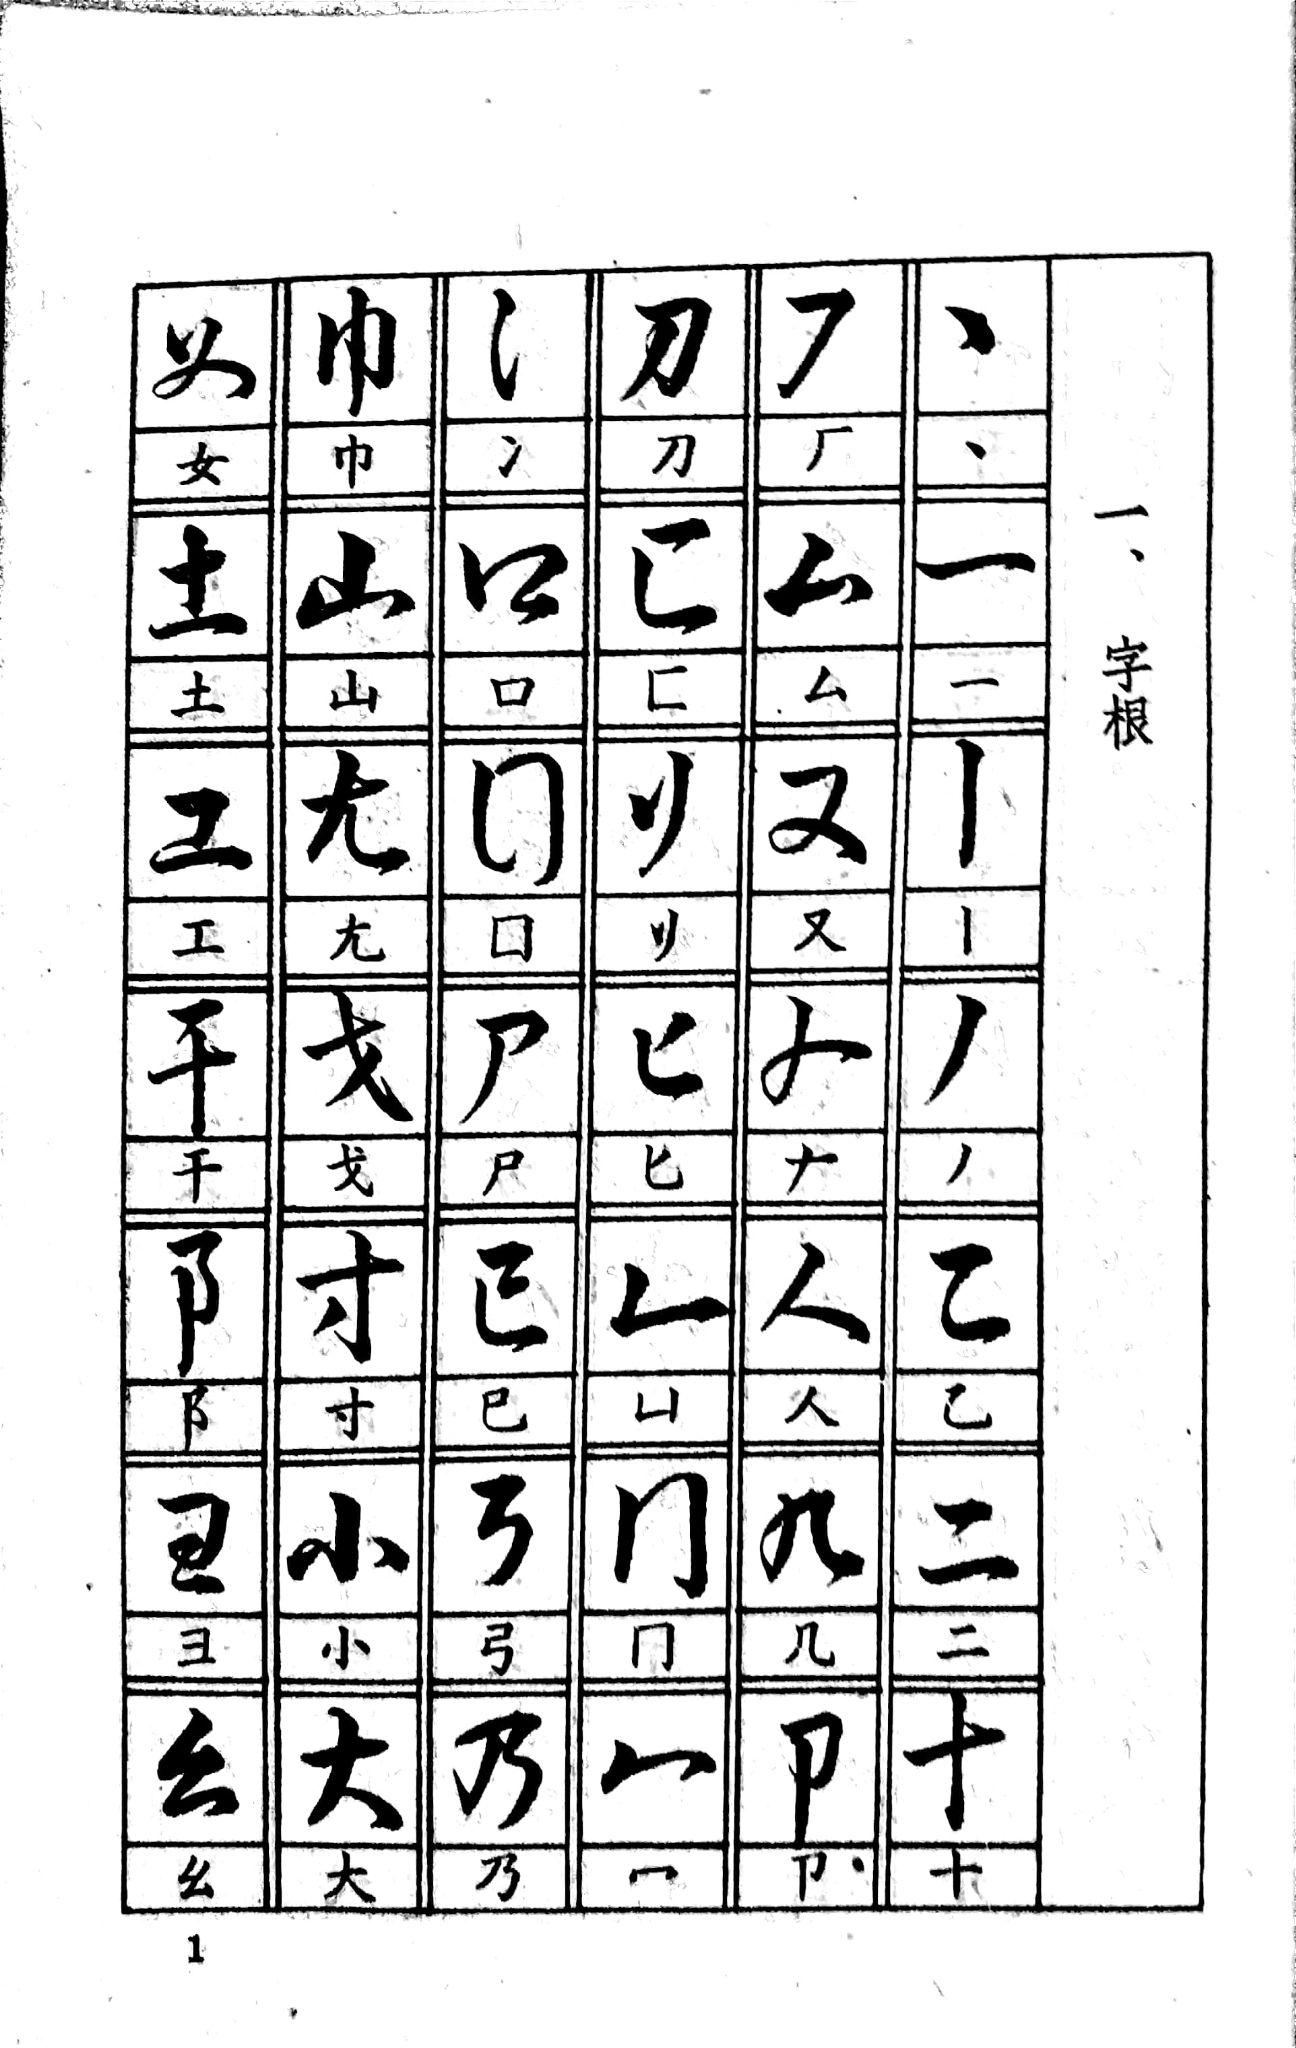 一、字根
丶
丶
一
一
丨
丨
丿
丿
乙
乙
二
二
十
十
厂
厂
厶
厶
又
又
𠂇
𠂇
人
人
几
几
卩
卩
刀
刀
匚
匚
刂
刂
匕
匕
凵
凵
冂
冂
冖
冖
冫
冫
口
口
囗
囗
尸
尸
巳
巳
弓
弓
乃
乃
巾
巾
山
山
尢
尢
戈
戈
寸
寸
小
小
大
大
女
女
土
土
工
工
干
干
阝
阝
彐
彐
幺
幺
1